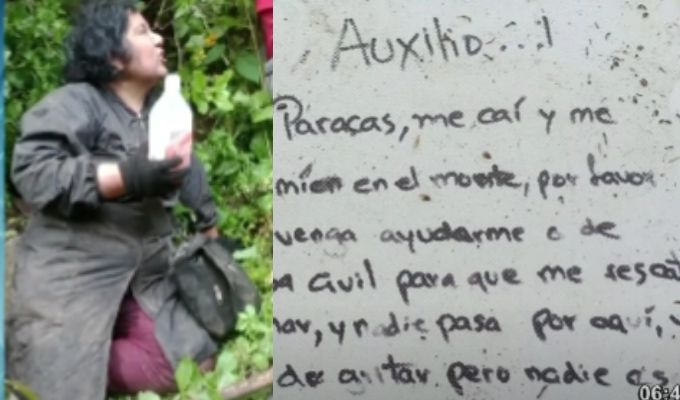 Auxilio...!
Paracas, me caí y me
en el monte, por favor
venga ayudarme o de
civil para que me
y nadie pasa por aquí,
de gritar pero nadie
06:4